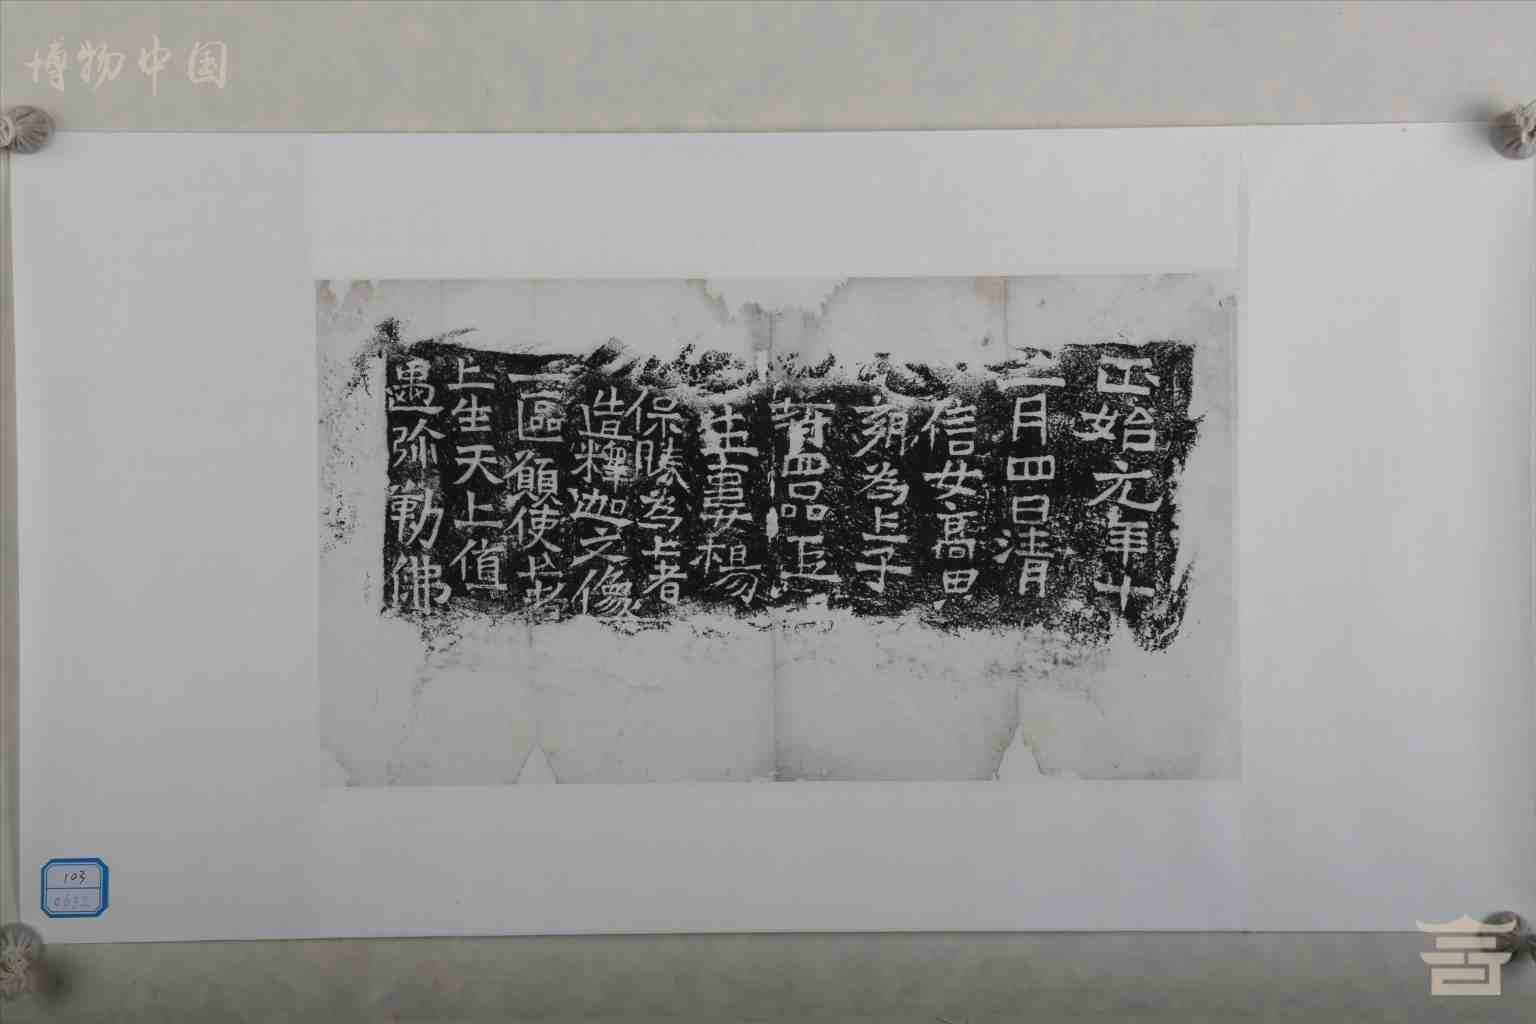 博物中国
正始元年十
二月四日清
信女高思
朔為亡子
保勝為亡者
造釋迦文像
一區願使亡者
上生天上值
遇弥勒佛
103
0632